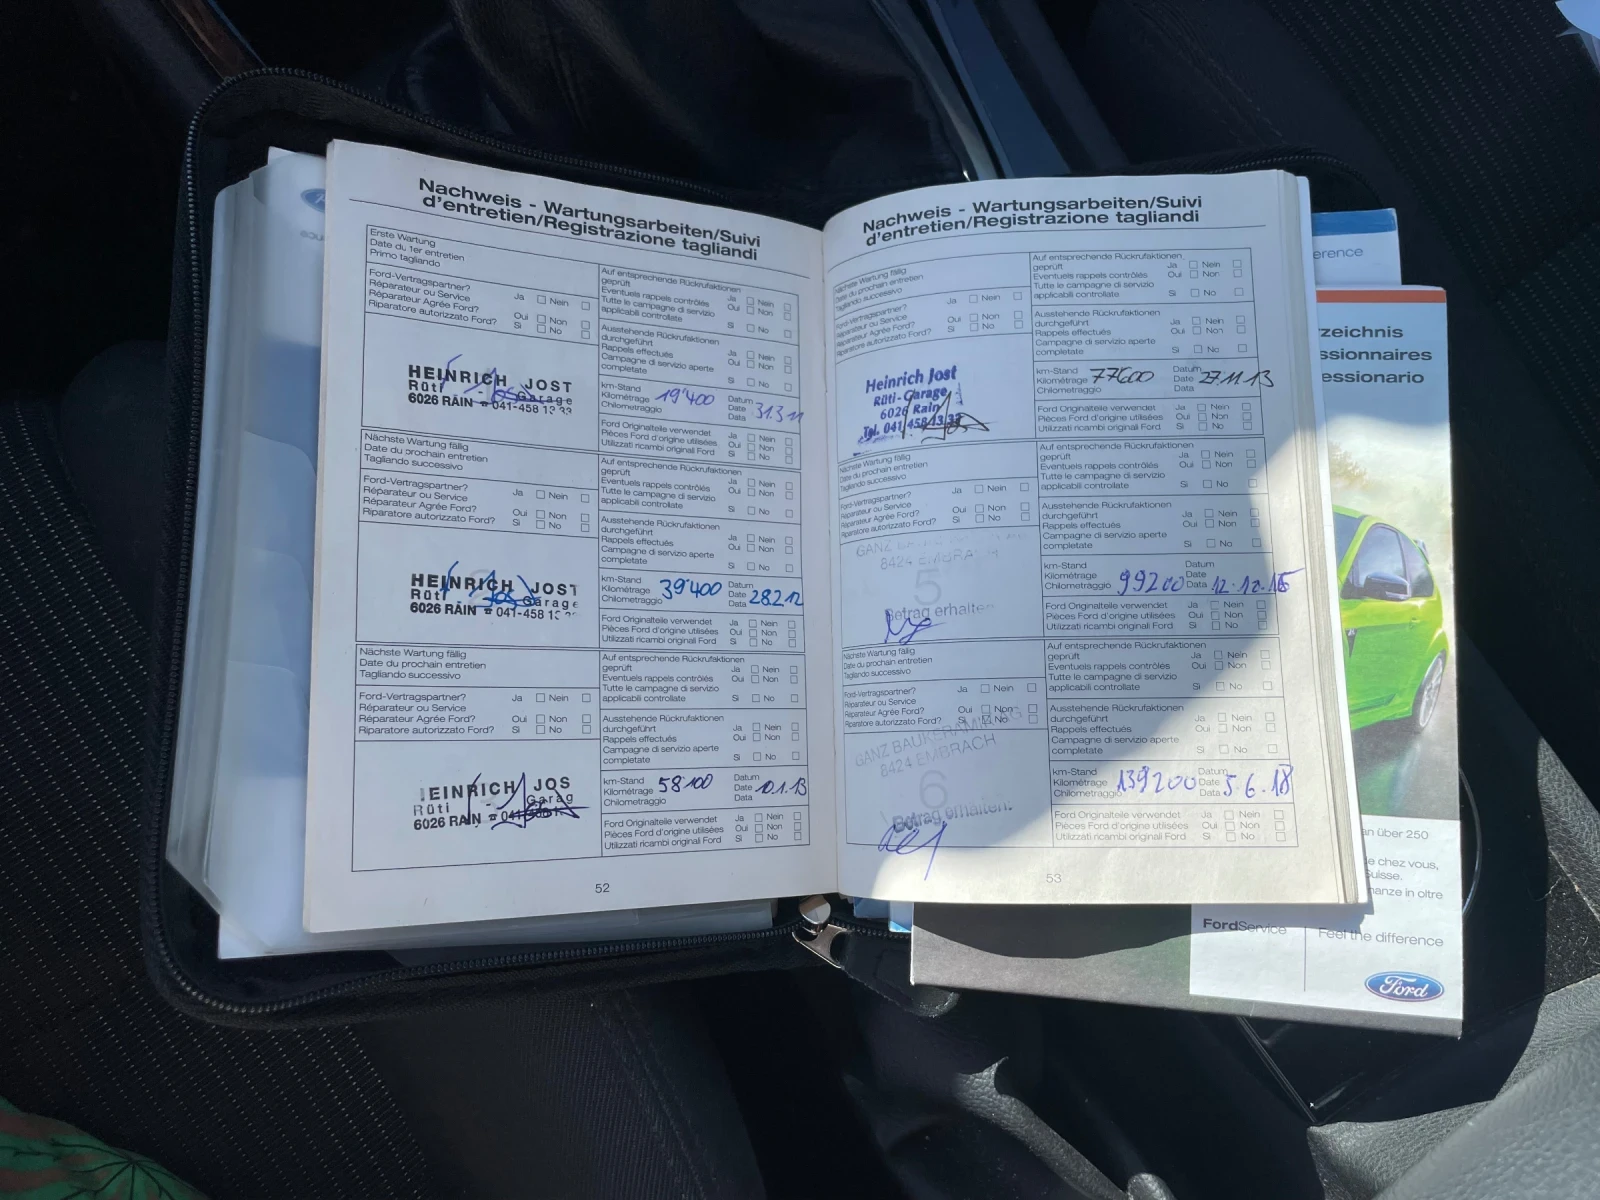 Nachweis - Wartungsarbeiten/Suivi
d'entretien/Registrazione tagliandi
Erste Wartung
Date du 1er entretien
Primo tagliando
Ford-Vertragspartner? Ja Nein
Réparateur ou Service
Réparateur Agrée Ford? Oui Non
Riparatore autorizzato Ford? Si No
HEINRICH JOST
Rüti - Garage
6026 RAIN ☎ 041-458 13 33
Auf entsprechende Rückrufaktionen
geprüft Ja Nein
Eventuels rappels contrôlés Oui Non
Tutte le campagne di servizio
applicabili controllate Si No
Ausstehende Rückrufaktionen
durchgeführt Ja Nein
Rappels effectués Oui Non
Campagne di servizio aperte
completate Si No
km-Stand Datum
Kilométrage 19'400 Date 31.3.11
Chilometraggio Data
Ford Originalteile verwendet Ja Nein
Pièces Ford d'origine utilisées Oui Non
Utilizzati ricambi originali Ford Si No
Nächste Wartung fällig
Date du prochain entretien
Tagliando successivo
Ford-Vertragspartner? Ja Nein
Réparateur ou Service
Réparateur Agrée Ford? Oui Non
Riparatore autorizzato Ford? Si No
HEINRICH JOST
Rüti Garage
6026 RAIN ☎ 041-458 13
Auf entsprechende Rückrufaktionen
geprüft Ja Nein
Eventuels rappels contrôlés Oui Non
Tutte le campagne di servizio
applicabili controllate Si No
Ausstehende Rückrufaktionen
durchgeführt Ja Nein
Rappels effectués Oui Non
Campagne di servizio aperte
completate Si No
km-Stand Datum
Kilométrage 39'400 Date
Chilometraggio Data 28.2.12
Ford Originalteile verwendet Ja Nein
Pièces Ford d'origine utilisées Oui Non
Utilizzati ricambi originali Ford Si No
Nächste Wartung fällig
Date du prochain entretien
Tagliando successivo
Ford-Vertragspartner? Ja Nein
Réparateur ou Service
Réparateur Agrée Ford? Oui Non
Riparatore autorizzato Ford? Si No
EINRICH JOS
Rüti - Garag
6026 RAIN ☎ 041
Auf entsprechende Rückrufaktionen
geprüft Ja Nein
Eventuels rappels contrôlés Oui Non
Tutte le campagne di servizio
applicabili controllate Si No
Ausstehende Rückrufaktionen
durchgeführt Ja Nein
Rappels effectués Oui Non
Campagne di servizio aperte
completate Si No
km-Stand 58'100 Datum
Kilométrage Date 10.1.13
Chilometraggio Data
Ford Originalteile verwendet Ja Nein
Pièces Ford d'origine utilisées Oui Non
Utilizzati ricambi originali Ford Si No
52
Nachweis - Wartungsarbeiten/Suivi
d'entretien/Registrazione tagliandi
Nächste Wartung fällig
Date du prochain entretien
Tagliando successivo
Ford-Vertragspartner? Ja Nein
Réparateur ou Service
Réparateur Agrée Ford? Oui Non
Riparatore autorizzato Ford? Si No
Heinrich Jost
Rüti-Garage
6026 Rain
Tgl. 041 458 13 33
Auf entsprechende Rückrufaktionen
geprüft Ja Nein
Eventuels rappels contrôlés Oui Non
Tutte le campagne di servizio
applicabili controllate Si No
Ausstehende Rückrufaktionen
durchgeführt Ja Nein
Rappels effectués Oui Non
Campagne di servizio aperte
completate Si No
km-Stand Datum
Kilométrage 77600 Date 27.11.13
Chilometraggio Data
Ford Originalteile verwendet Ja Nein
Pièces Ford d'origine utilisées Oui Non
Utilizzati ricambi originali Ford Si No
Nächste Wartung fällig
Date du prochain entretien
Tagliando successivo
Ford-Vertragspartner? Ja Nein
Réparateur ou Service
Réparateur Agrée Ford? Oui Non
Riparatore autorizzato Ford? Si No
GANZ
8424 EMBRACH
5
Betrag erhalten
Auf entsprechende Rückrufaktionen
geprüft Ja Nein
Eventuels rappels contrôlés Oui Non
Tutte le campagne di servizio
applicabili controllate Si No
Ausstehende Rückrufaktionen
durchgeführt Ja Nein
Rappels effectués Oui Non
Campagne di servizio aperte
completate Si No
km-Stand Datum
Kilométrage 99200 Date
Chilometraggio Data
Ford Originalteile verwendet Ja Nein
Pièces Ford d'origine utilisées Oui Non
Utilizzati ricambi originali Ford Si No
Nächste Wartung fällig
Date du prochain entretien
Tagliando successivo
Ford-Vertragspartner? Ja Nein
Réparateur ou Service
Réparateur Agrée Ford? Oui Non
Riparatore autorizzato Ford? Si No
GANZ BAUKERAMIK AG
8424 EMBRACH
6
Betrag erhalten:
Auf entsprechende Rückrufaktionen
geprüft Ja Nein
Eventuels rappels contrôlés Oui Non
Tutte le campagne di servizio
applicabili controllate Si No
Ausstehende Rückrufaktionen
durchgeführt Ja Nein
Rappels effectués Oui Non
Campagne di servizio aperte
completate Si No
km-Stand Datum
Kilométrage 139200 Date
Chilometraggio Data 5.6.18
Ford Originalteile verwendet Ja Nein
Pièces Ford d'origine utilisées Oui Non
Utilizzati ricambi originali Ford Si No
53
erence
zeichnis
ssionnaires
essionario
an über 250
e chez vous,
Suisse.
nanze in oltre
FordService
Feel the difference
Ford